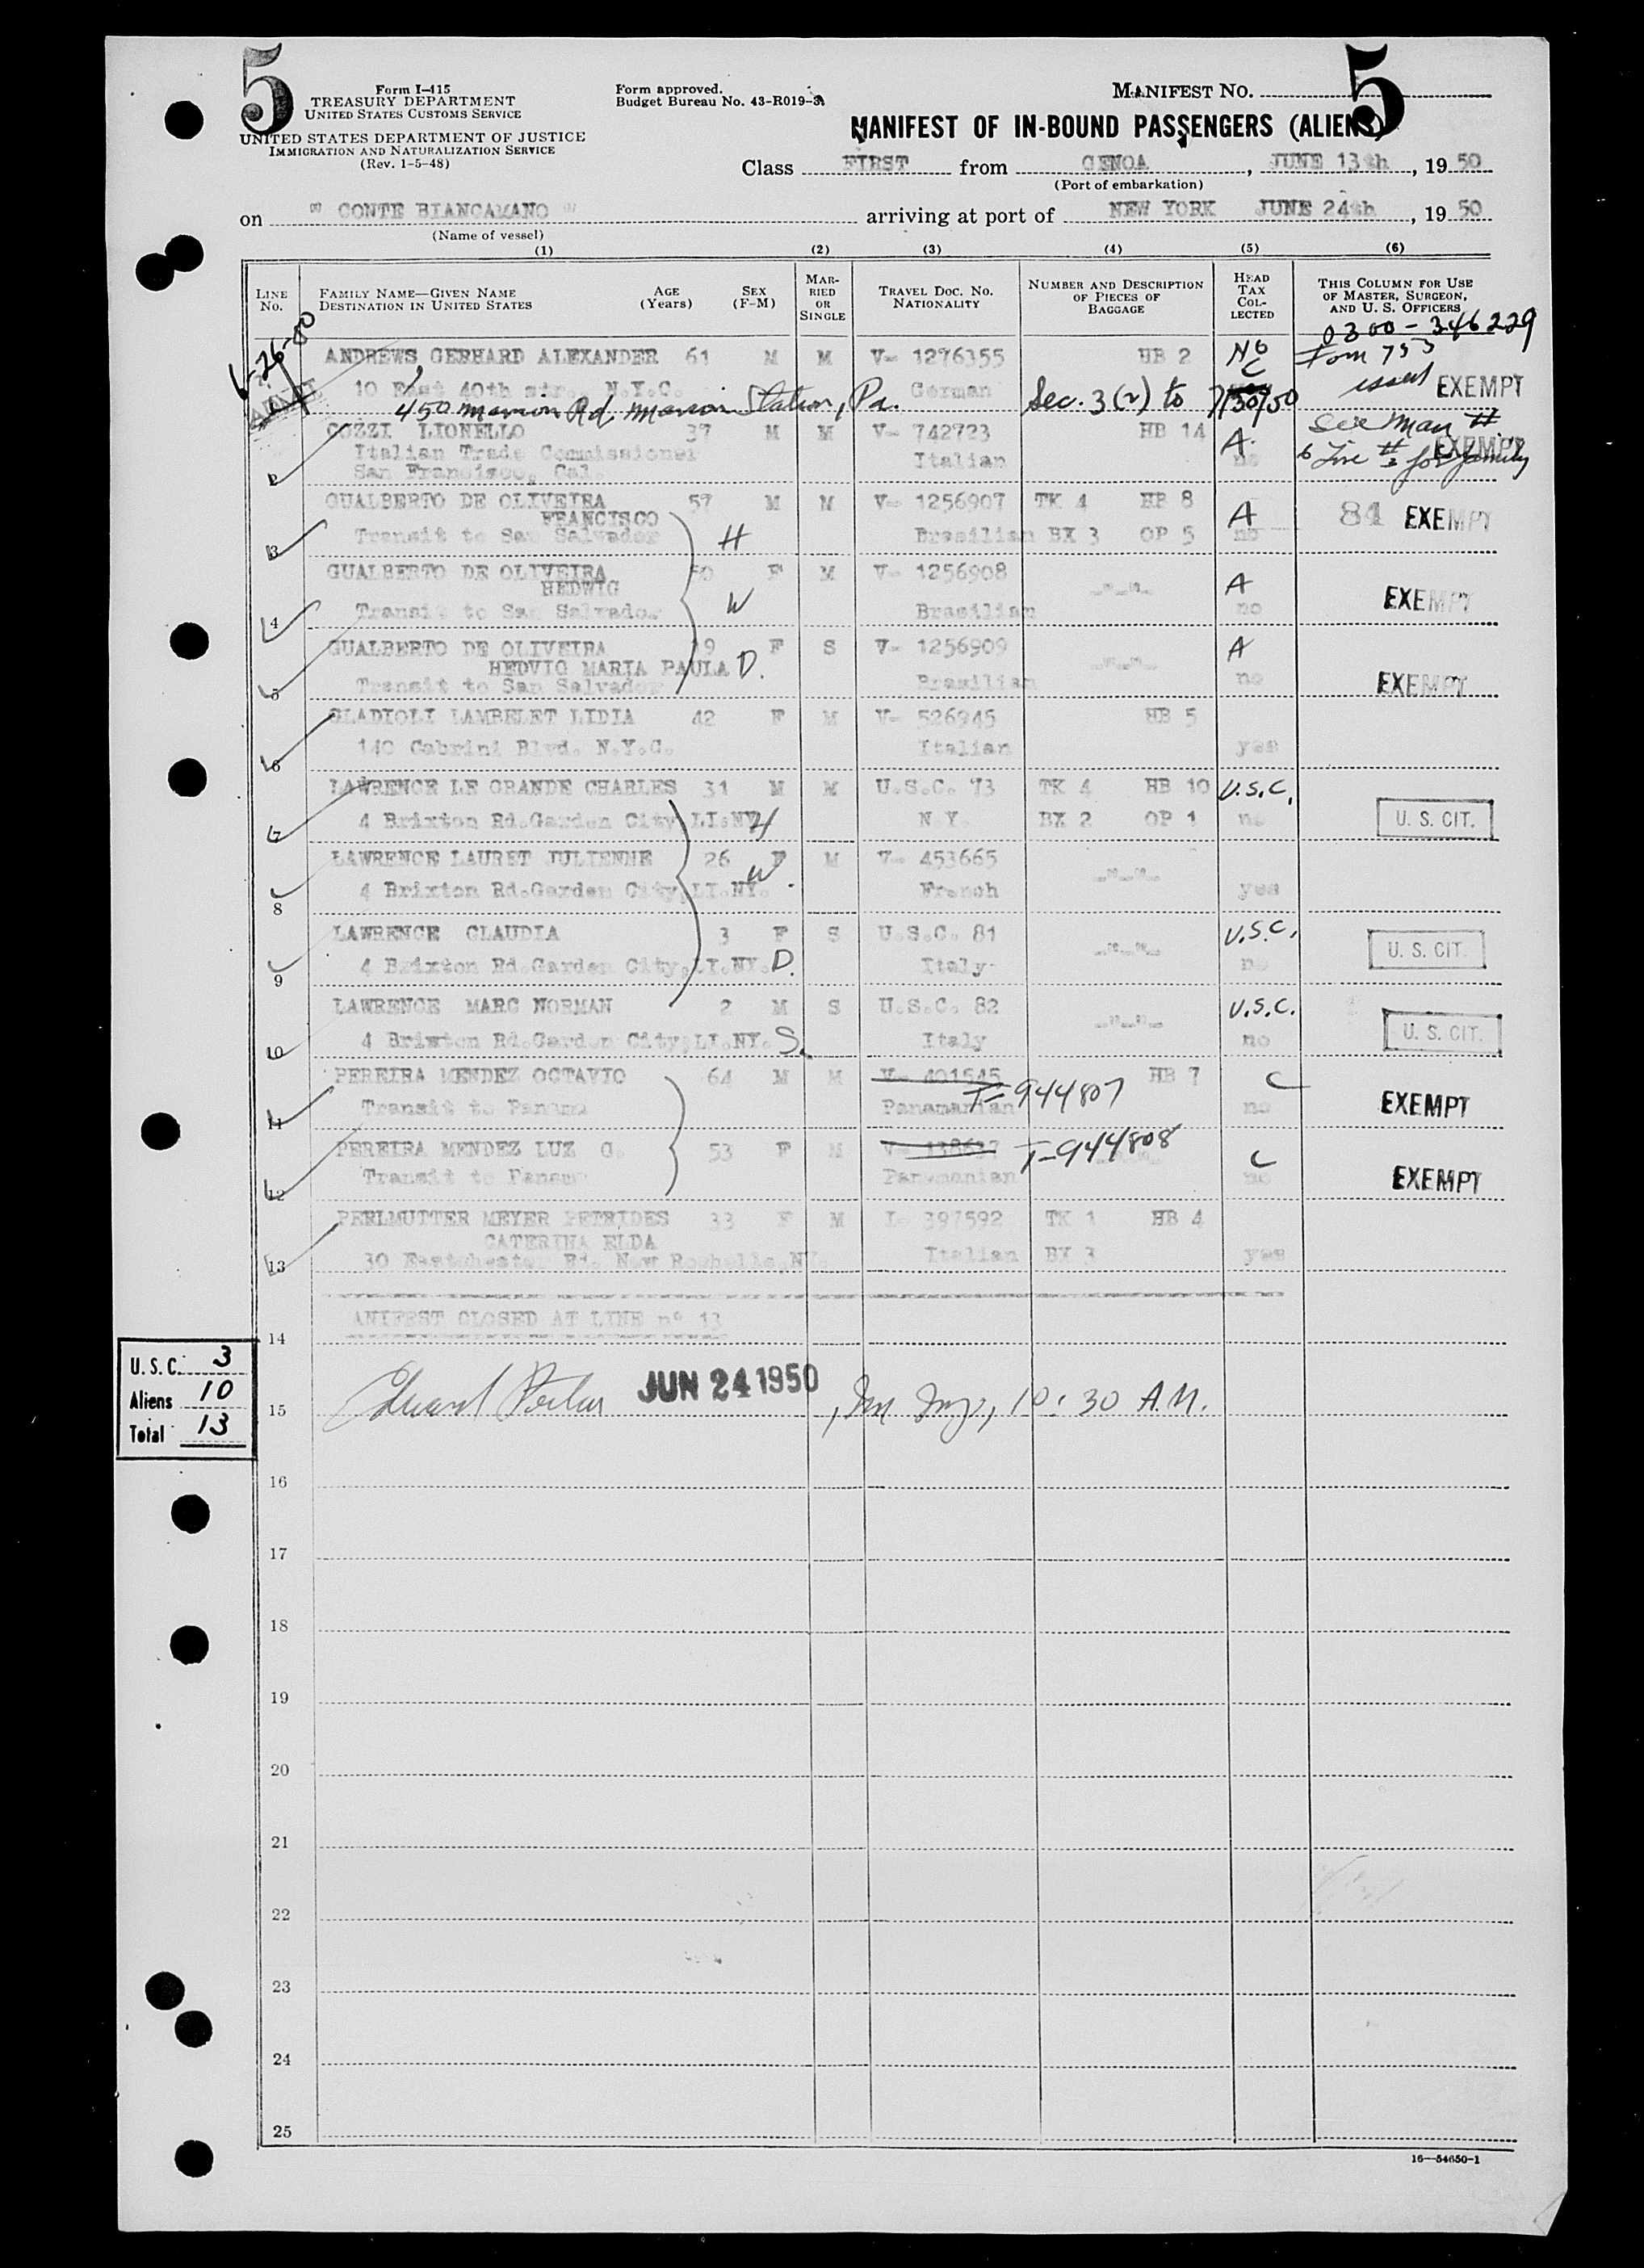 5
5
Form I-415
TREASURY DEPARTMENT
UNITED STATES CUSTOMS SERVICE
UNITED STATES DEPARTMENT OF JUSTICE
IMMIGRATION AND NATURALIZATION SERVICE
(Rev. 1-5-48)
Form approved.
Budget Bureau No. 43-R019-3
MANIFEST NO.
MANIFEST OF IN-BOUND PASSENGERS (ALIENS)
Class FIRST from GENOA, JUNE 13th, 19 50
(Port of embarkation)
on " CONTE BIANCAMANO " arriving at port of NEW YORK JUNE 24th, 19 50
(Name of vessel)
(1) (2) (3) (4) (5) (6)
LINE NO. FAMILY NAME—GIVEN NAME DESTINATION IN UNITED STATES AGE (Years) SEX (F-M) MARRIED OR SINGLE TRAVEL DOC. NO. NATIONALITY NUMBER AND DESCRIPTION OF PIECES OF BAGGAGE HEAD TAX COLLECTED THIS COLUMN FOR USE OF MASTER, SURGEON, AND U. S. OFFICERS
0300-346229
ANDREWS GERHARD ALEXANDER 61 M M V- 1276355 HB 2 No C Form 753
10 East 40th str. N.Y.C. German issued EXEMPT
450 Marion Rd, Marion Station, Pa. Sec. 3(2) to 7/30/50
COZZI LIONELLO 37 M M V- 742723 HB 14 A. See Man #
Italian Trade Commissioner Italian no 6 Line # 3 for family EXEMPT
2 San Francisco, Cal.
GUALBERTO DE OLIVEIRA 57 M M V- 1256907 TK 4 HB 8 A 84 EXEMPT
FRANCISCO
3 Transit to San Salvador H Brasilian BX 3 OP 5 no
GUALBERTO DE OLIVEIRA 50 F M V- 1256908 -"-"- A
HEDWIG EXEMPT
4 Transit to San Salvador W Brasilian no
GUALBERTO DE OLIVEIRA 19 F S V- 1256909 -"-"- A
HEDVIG MARIA PAULA D.
5 Transit to San Salvador Brasilian no EXEMPT
GLADIOLI LAMBELET LIDIA 42 F M V- 526945 HB 5
6 140 Cabrini Blvd. N.Y.C. Italian yes
LAWRENCE LE GRANDE CHARLES 31 M M U.S.C. 73 TK 4 HB 10 U.S.C.
7 4 Brixton Rd.Garden City,LI.NY. H N.Y. BX 2 OP 1 no U. S. CIT.
LAWRENCE LAURET JULIENNE 26 F M V- 453665 -"-"-
8 4 Brixton Rd.Garden City,LI.NY. W. French yes
LAWRENCE CLAUDIA 3 F S U.S.C. 81 -"-"- U.S.C.
9 4 Brixton Rd.Garden City,LI.NY. D. Italy no U. S. CIT.
LAWRENCE MARC NORMAN 2 M S U.S.C. 82 -"-"- U.S.C.
10 4 Brixton Rd.Garden City,LI.NY. S. Italy no U. S. CIT.
PEREIRA MENDEZ OCTAVIO 64 M M V- 401545 T-944807 HB 7 C
11 Transit to Panama Panamanian no EXEMPT
PEREIRA MENDEZ LUZ G. 53 F M T-944808 C
12 Transit to Panama Panamanian no EXEMPT
PERLMUTTER MEYER PETRIDES 33 F M I- 397592 TK 1 HB 4
CATERINA ELDA
13 30 Eastchester Rd. New Rochelle,NY. Italian BX 3 yes
ANIFEST CLOSED AT LINE n° 13
14
U. S. C. 3
Aliens 10
Total 13
15 JUN 24 1950, Imm Insp, 10:30 A.M.
16
17
18
19
20
21
22
23
24
25
16—54650-1